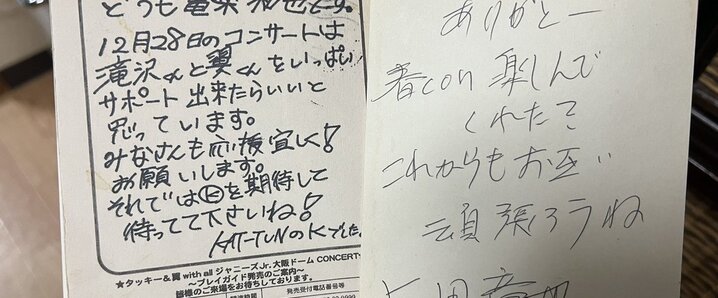 どうも亀梨和也です。
12月28日のコンサートは
滝沢くんと翼くんをいっぱい
サポート出来たらいいと
思っています。
みなさんも応援宜しく!
お願いします。
それでは㋖を期待して
待ってて下さいね!
KAT-TUNのKでした。
★タッキー&翼 with all ジャニーズJr. 大阪ドーム CONCERT
~プレイガイド発売のご案内~
皆様のご来場をお待ちしております。
発売受付電話番号等
ありがとー
春con 楽しんで
くれた?
これからもお互い
頑張ろうね